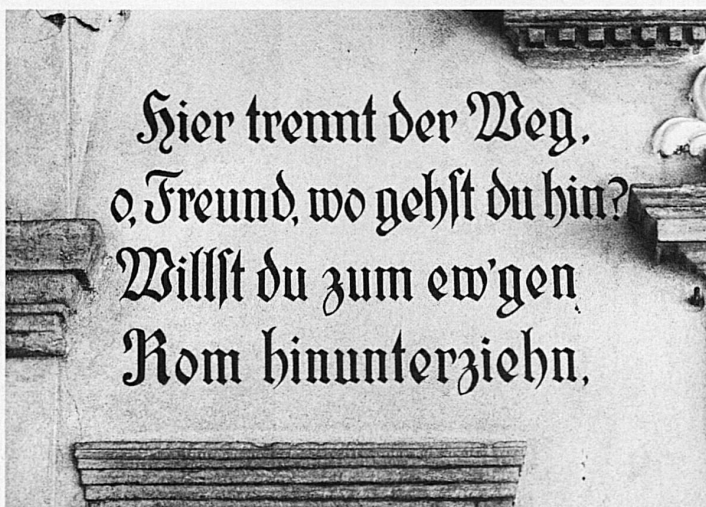 Hier trennt der Weg,
o, Freund, wo gehst du hin?
Willst du zum ew'gen
Rom hinunterziehn,